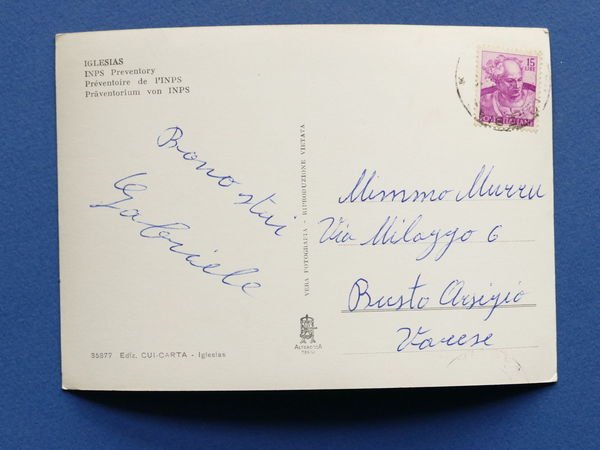 IGLESIAS
INPS Preventory
Préventoire de l'INPS
Präventorium von INPS
15
LIRE
Gabriele
VERA FOTOGRAFIA - RIPRODUZIONE VIETATA
Mimmo Murru
Via Milazzo 6
Busto Arsizio
Varese
ALTEROCCA
TERNI
35877 Ediz. CUI-CARTA - Iglesias